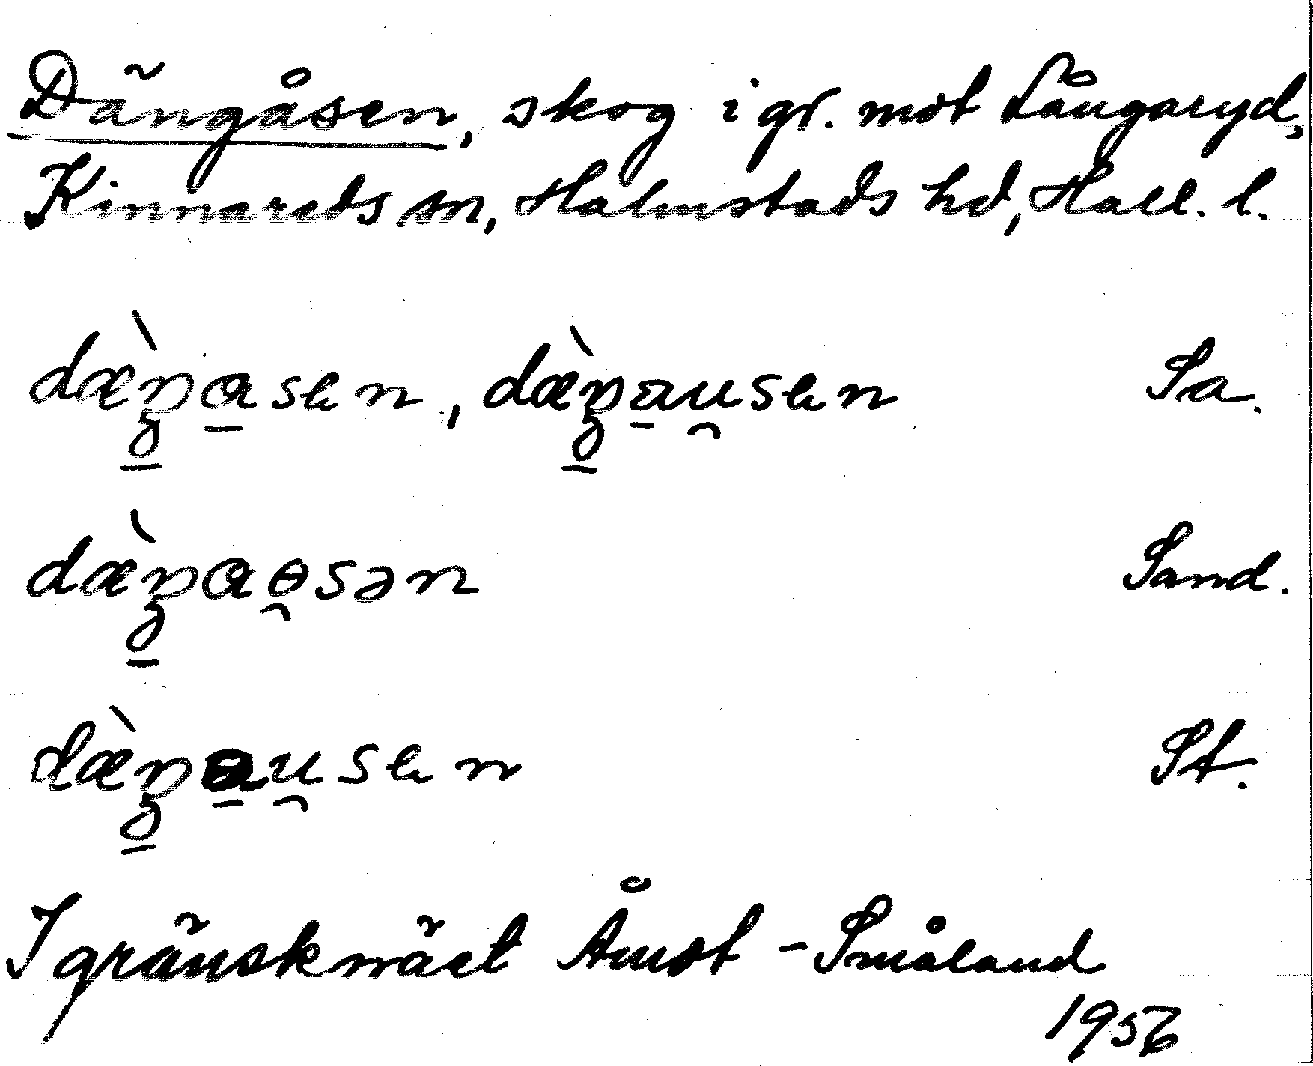 Dängåsen, skog i gr. mot Långaryd,
Kinnareds sn, Halmstads hd, Hall. l.
dæ̀ŋɑsen, dæ̀ŋausen Sa.
dæ̀ŋɑɵsən Sand.
dæ̀ŋausen St.
I gränsknäet Åmot - Småland
1956